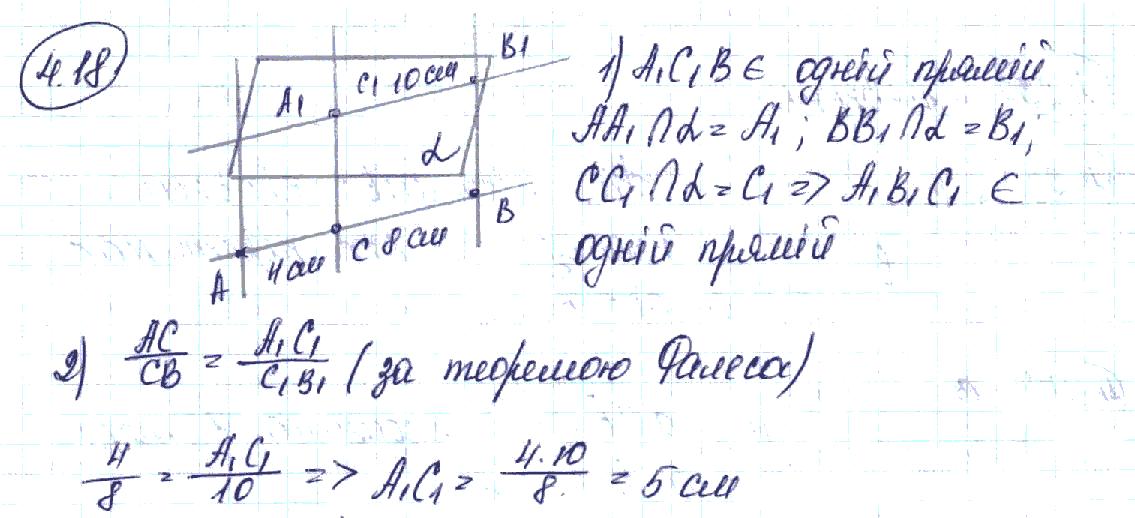 4.18
B₁
C₁ 10 см
A₁
α
B
C 8 см
4 см
A
1) A₁C₁B є одній прямій
AA₁∩α = A₁; BB₁∩α = B₁;
CC₁∩α = C₁ => A₁B₁C₁ є
одній прямій
2) AC/CB = A₁C₁/C₁B₁ (за теоремою Фалеса)
4/8 = A₁C₁/10 => A₁C₁ = 4·10/8 = 5 см